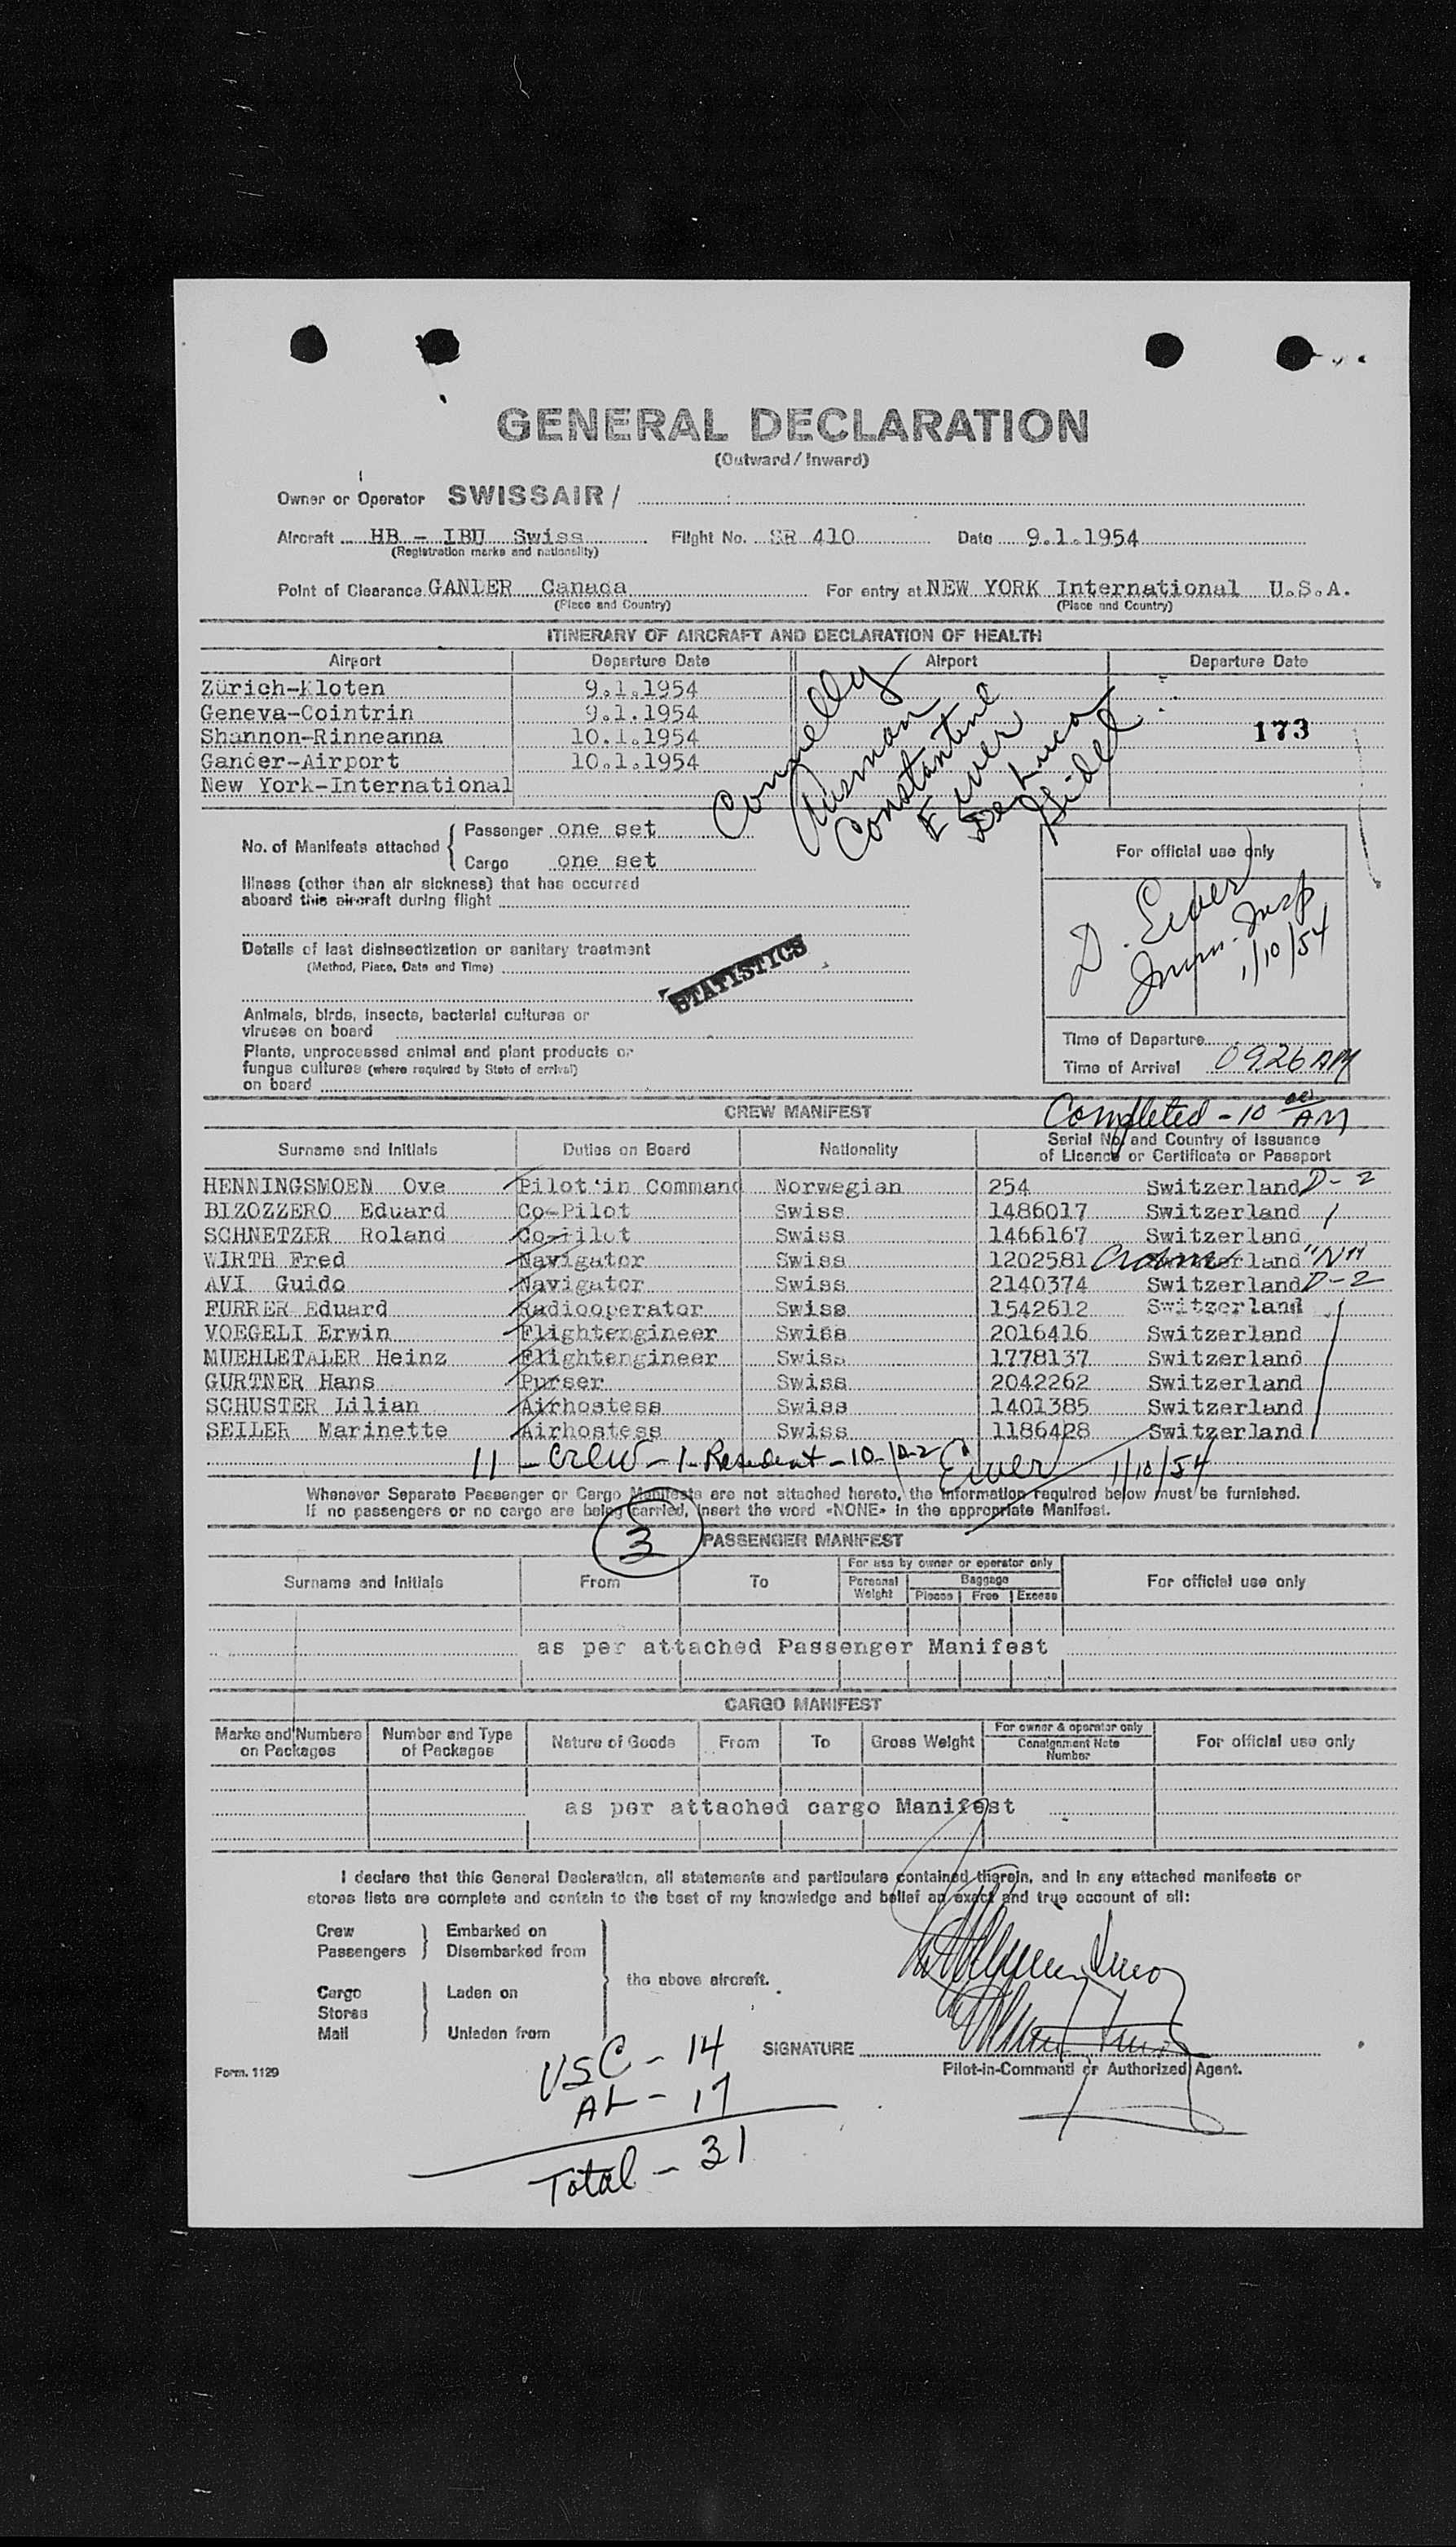 GENERAL DECLARATION
(Outward / Inward)
Owner or Operator SWISSAIR /
Aircraft HB - IBU Swiss Flight No. SR 410 Date 9.1.1954
(Registration marks and nationality)
Point of Clearance GANDER Canada For entry at NEW YORK International U.S.A.
(Place and Country) (Place and Country)
ITINERARY OF AIRCRAFT AND DECLARATION OF HEALTH
Airport Departure Date Airport Departure Date
Zürich-Kloten 9.1.1954
Geneva-Cointrin 9.1.1954
Shannon-Rinneanna 10.1.1954 173
Gander-Airport 10.1.1954
New York-International
Connelly
Constantine
Eiver
De Luca
No. of Manifests attached { Passenger one set
Cargo one set
For official use only
Illness (other than air sickness) that has occurred
aboard this aircraft during flight
D. Eiver
Imm. Insp
1/10/54
Details of last disinsectization or sanitary treatment
(Method, Place, Date and Time)
STATISTICS
Animals, birds, insects, bacterial cultures or
viruses on board
Plants, unprocessed animal and plant products or
fungus cultures (where required by State of arrival)
on board
Time of Departure
Time of Arrival 0926 AM
Completed - 10 00 AM
CREW MANIFEST
Surname and Initials Duties on Board Nationality Serial No. and Country of Issuance
of Licence or Certificate or Passport
HENNINGSMOEN Ove Pilot in Command Norwegian 254 Switzerland D-2
BIZOZZERO Eduard Co-Pilot Swiss 1486017 Switzerland
SCHNETZER Roland Co-Pilot Swiss 1466167 Switzerland
WIRTH Fred Navigator Swiss 1202581 Switzerland
AVI Guido Navigator Swiss 2140374 Switzerland D-2
FURRER Eduard Radiooperator Swiss 1542612 Switzerland
VOEGELI Erwin Flightengineer Swiss 2016416 Switzerland
MUEHLETALER Heinz Flightengineer Swiss 1778137 Switzerland
GURTNER Hans Purser Swiss 2042262 Switzerland
SCHUSTER Lilian Airhostess Swiss 1401385 Switzerland
SEILER Marinette Airhostess Swiss 1186428 Switzerland
11 - Crew - 1 - Resident - 10 - D-2 Eiver 1/10/54
Whenever Separate Passenger or Cargo Manifests are not attached hereto, the information required below must be furnished.
If no passengers or no cargo are being carried, insert the word «NONE» in the appropriate Manifest.
3
PASSENGER MANIFEST
Surname and Initials From To For use by owner or operator only For official use only
Personal Weight Baggage
Pieces Free Excess
as per attached Passenger Manifest
CARGO MANIFEST
Marks and Numbers on Packages Number and Type of Packages Nature of Goods From To Gross Weight For owner & operator only
Consignment Note Number For official use only
as per attached cargo Manifest
I declare that this General Declaration, all statements and particulars contained therein, and in any attached manifests or
stores lists are complete and contain to the best of my knowledge and belief an exact and true account of all:
Crew Embarked on
Passengers Disembarked from
the above aircraft.
Cargo Laden on
Stores
Mail Unladen from
SIGNATURE
Pilot-in-Command or Authorized Agent.
Form. 1129
USC - 14
AL - 17
Total - 31